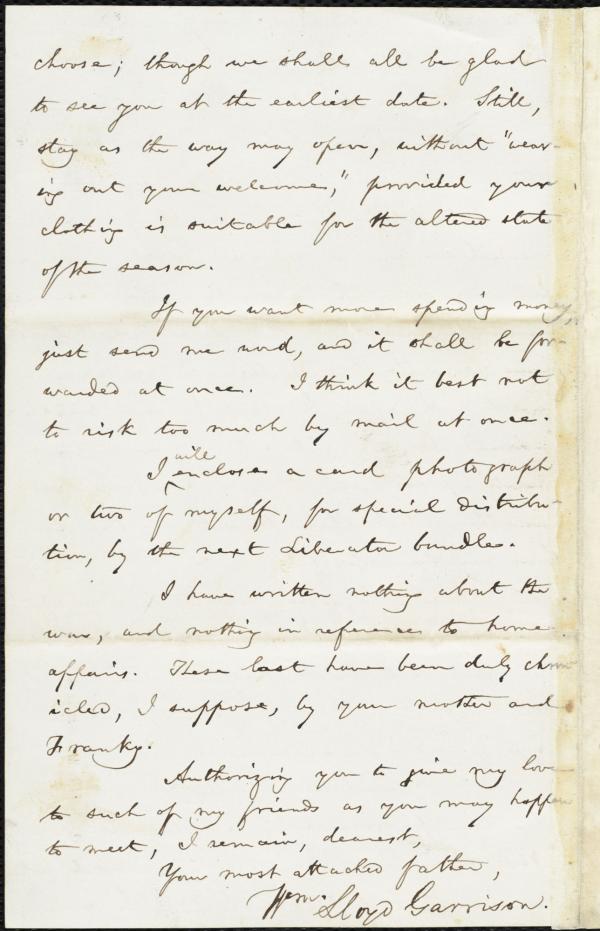 choose; though we shall all be glad
to see you at the earliest date. Still,
stay as the way may open, without "wear-
ing out your welcome," provided your
clothing is suitable for the altered state
of the season.
If you want more spending money,
just send me word, and it shall be for-
warded at once. I think it best not
to risk too much by mail at once.
will
I enclose a card photograph
or two of myself, for special distribu-
tion, by the next Liberator bundle.
I have written nothing about the
war, and nothing in reference to home
affairs. These last have been duly chron
icled, I suppose, by your mother and
Franky.
Authorizing you to give my love
to such of my friends as you may happen
to meet, I remain, dearest,
Your most attached father,
Wm. Lloyd Garrison.